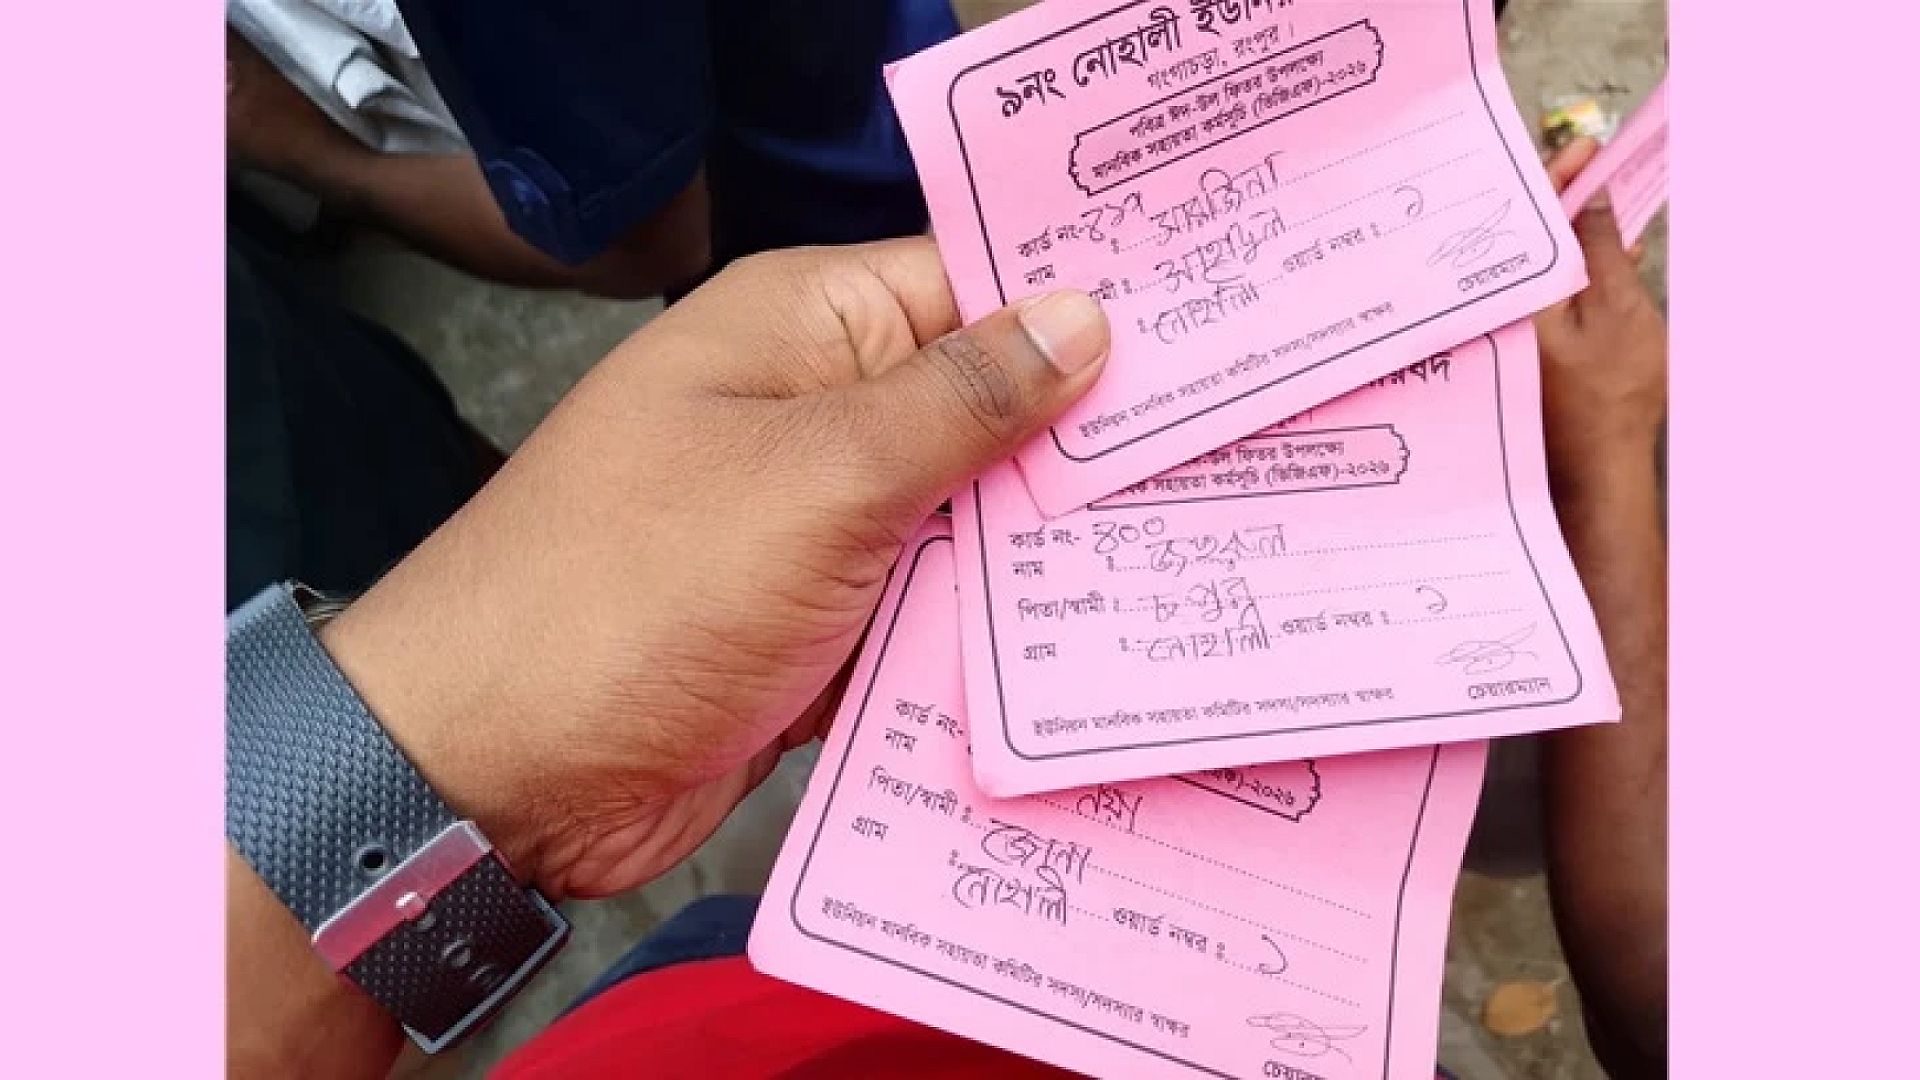 ৯নং নোহালী
গংগাচড়া, রংপুর।
পবিত্র ঈদ-উল ফিতর উপলক্ষ্যে
মানবিক সহায়তা কর্মসূচি (ভিজিএফ)-২০২৬
কার্ড নং-৪১৭
নাম ঃ সারজিনা
ঃ ওয়ার্ড নম্বর ঃ ১
ঃ নোহালী
চেয়ারম্যান
ইউনিয়ন মানবিক সহায়তা কমিটির সদস্য/সদস্যার স্বাক্ষর
ফিতর উপলক্ষ্যে
সহায়তা কর্মসূচি (ভিজিএফ)-২০২৬
কার্ড নং- ৪০০
নাম ঃ
পিতা/স্বামী ঃ
গ্রাম ঃ নোহালী ওয়ার্ড নম্বর ঃ ১
চেয়ারম্যান
ইউনিয়ন মানবিক সহায়তা কমিটির সদস্য/সদস্যার স্বাক্ষর
-২০২৬
কার্ড নং-
নাম
পিতা/স্বামী ঃ
গ্রাম ঃ নোহালী ওয়ার্ড নম্বর ঃ ১
ইউনিয়ন মানবিক সহায়তা কমিটির সদস্য/সদস্যার স্বাক্ষর